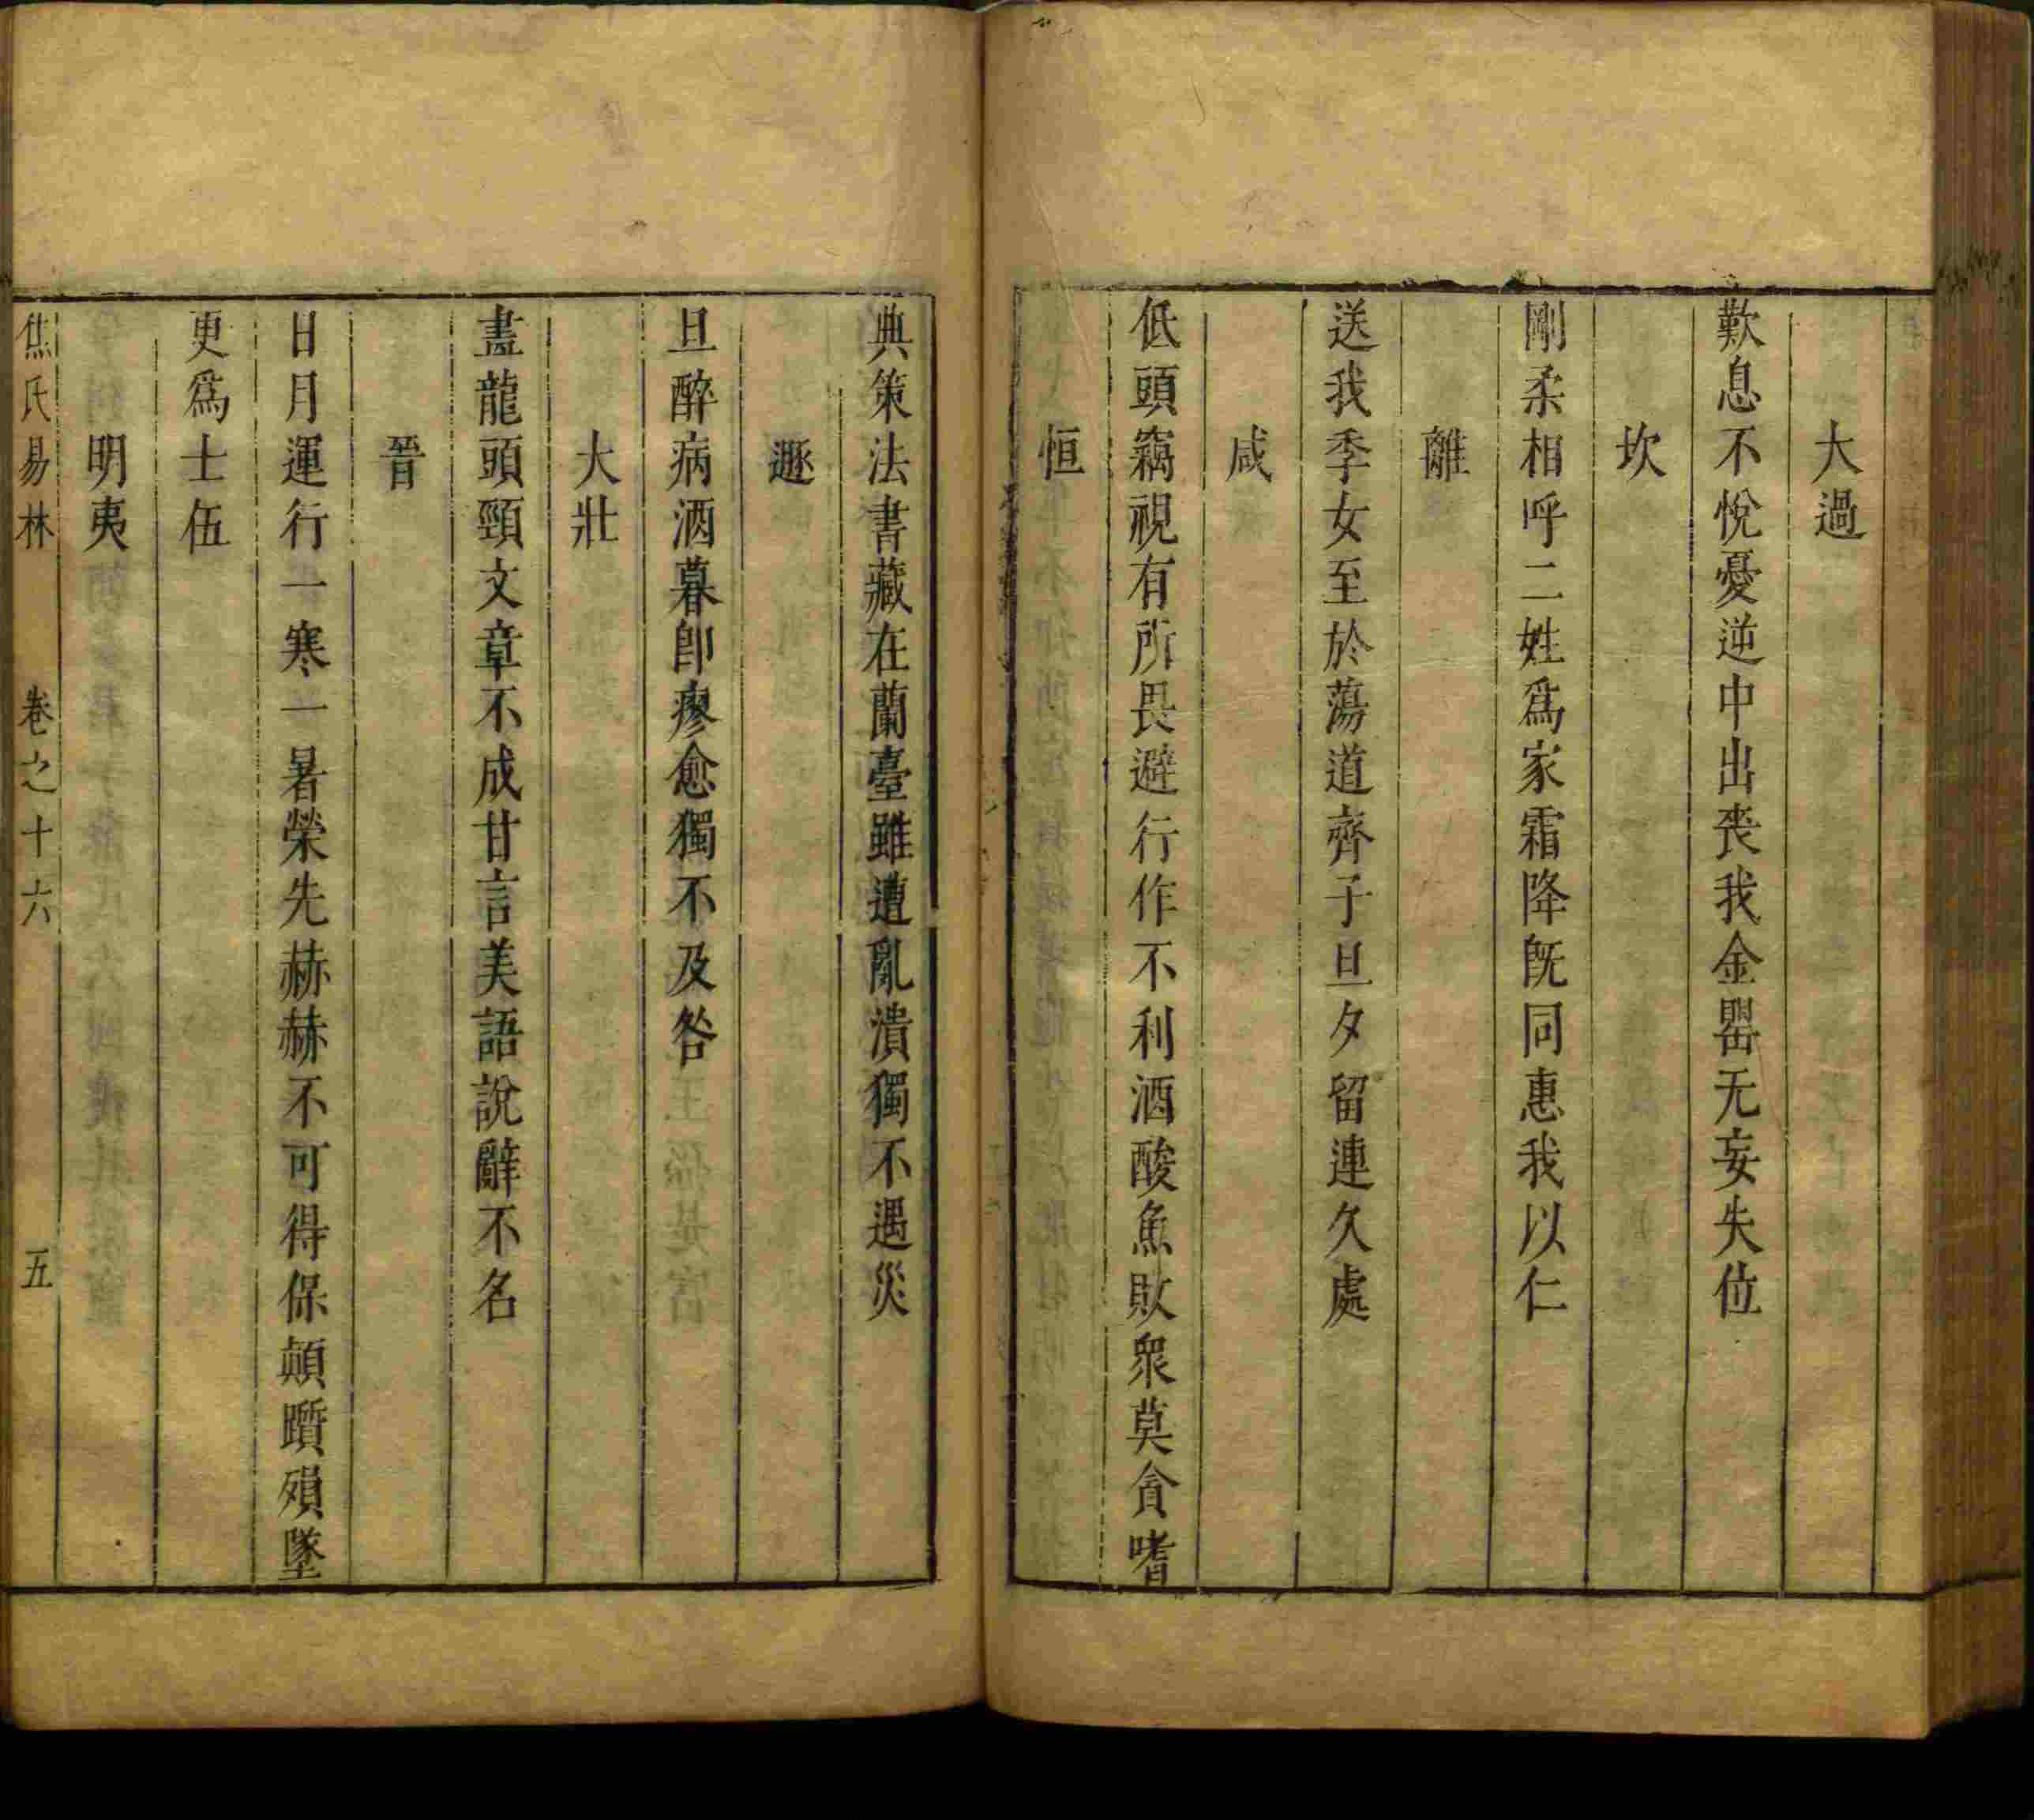 大過
歎息不悅憂逆中出喪我金罌无妄失位
坎
剛柔相呼二姓爲家霜降旣同惠我以仁
離
送我季女至於蕩道齊子旦夕留連久處
咸
低頭竊視有所畏避行作不利酒酸魚敗衆莫貪嗜
恒
典策法書藏在蘭臺雖遭亂潰獨不遇災
遯
旦醉病酒暮卽瘳愈獨不及咎
大壯
畫龍頭頸文章不成甘言美語說辭不名
晉
日月運行一寒一暑榮先赫赫不可得保顛躓殞墜
更爲士伍
明夷
焦氏易林 卷之十六 五